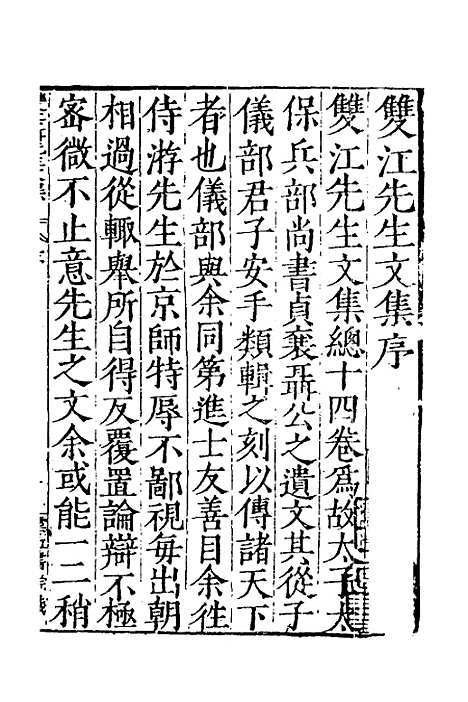 雙江先生文集序
雙江先生文集總十四卷爲故太子太
保兵部尚書貞襄聶公之遺文其從子
儀部君子安手類輯之刻以傳諸天下
者也儀部與余同第進士友善目余徃
侍游先生於京師特辱不鄙視每出朝
相過從輒舉所自得反覆置論辯不極
宻微不止意先生之文余或能一二稍